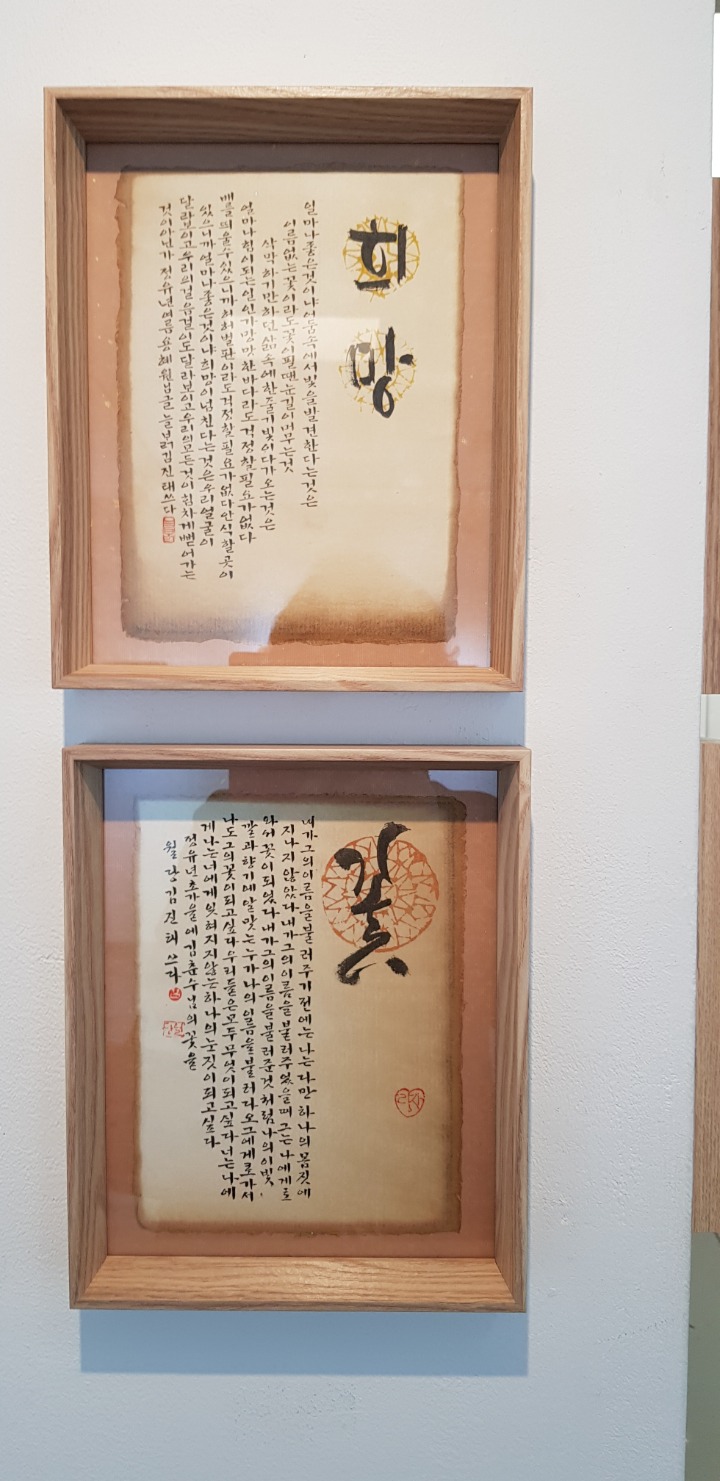 희망
얼마나좋은것이냐어둠속에서빛을발견한다는것은
이름없는꽃이라도꽃이필땐눈길이머무는것
삭막하기만하던삶속에한줄기빛이다가오는것은
얼마나힘이되는일인가망망한바다라도걱정할필요가없다
배를띄울수있으니까허허벌판이라도걱정할필요가없다안식할곳이
있으니까얼마나좋은것이냐희망이넘친다는것은우리얼굴이
달라보이고우리의걸음걸이도달라보이고우리의모든것이힘차게뻗어가는
것이아닌가 정유년여름용혜원님글 김진태쓰다
꽃
내가그의이름을불러주기전에는그는다만 하나의몸짓에
지나지 않았다내가그의이름을불러주었을때 그는나에게로
와서 꽃이되었다내가그의이름을불러준것처럼나의이빛
깔과향기에알맞는누가나의이름을불러다오그에게로가서
나도그의꽃이되고싶다우리들은모두무엇이되고싶다너는나에
게나는너에게잊혀지지않는하나의눈짓이되고싶다
정유년초가을에김춘수님의꽃을
월랑김진태쓰다